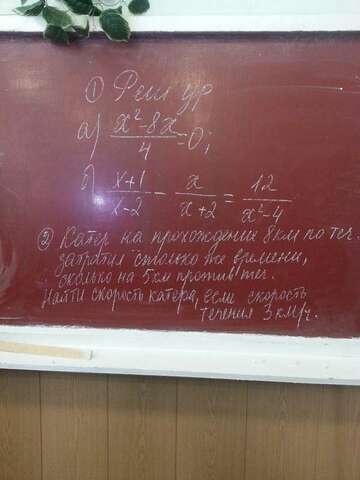 ① Реш ур
а) (x²-8x)/4 = 0;
б) (x+1)/(x-2) - x/(x+2) = 12/(x²-4)
② Катер на прохождение 8км по теч.
затратил столько же времени,
сколько на 5км против теч.
Найти скорость катера, если скорость
течения 3 км/ч.